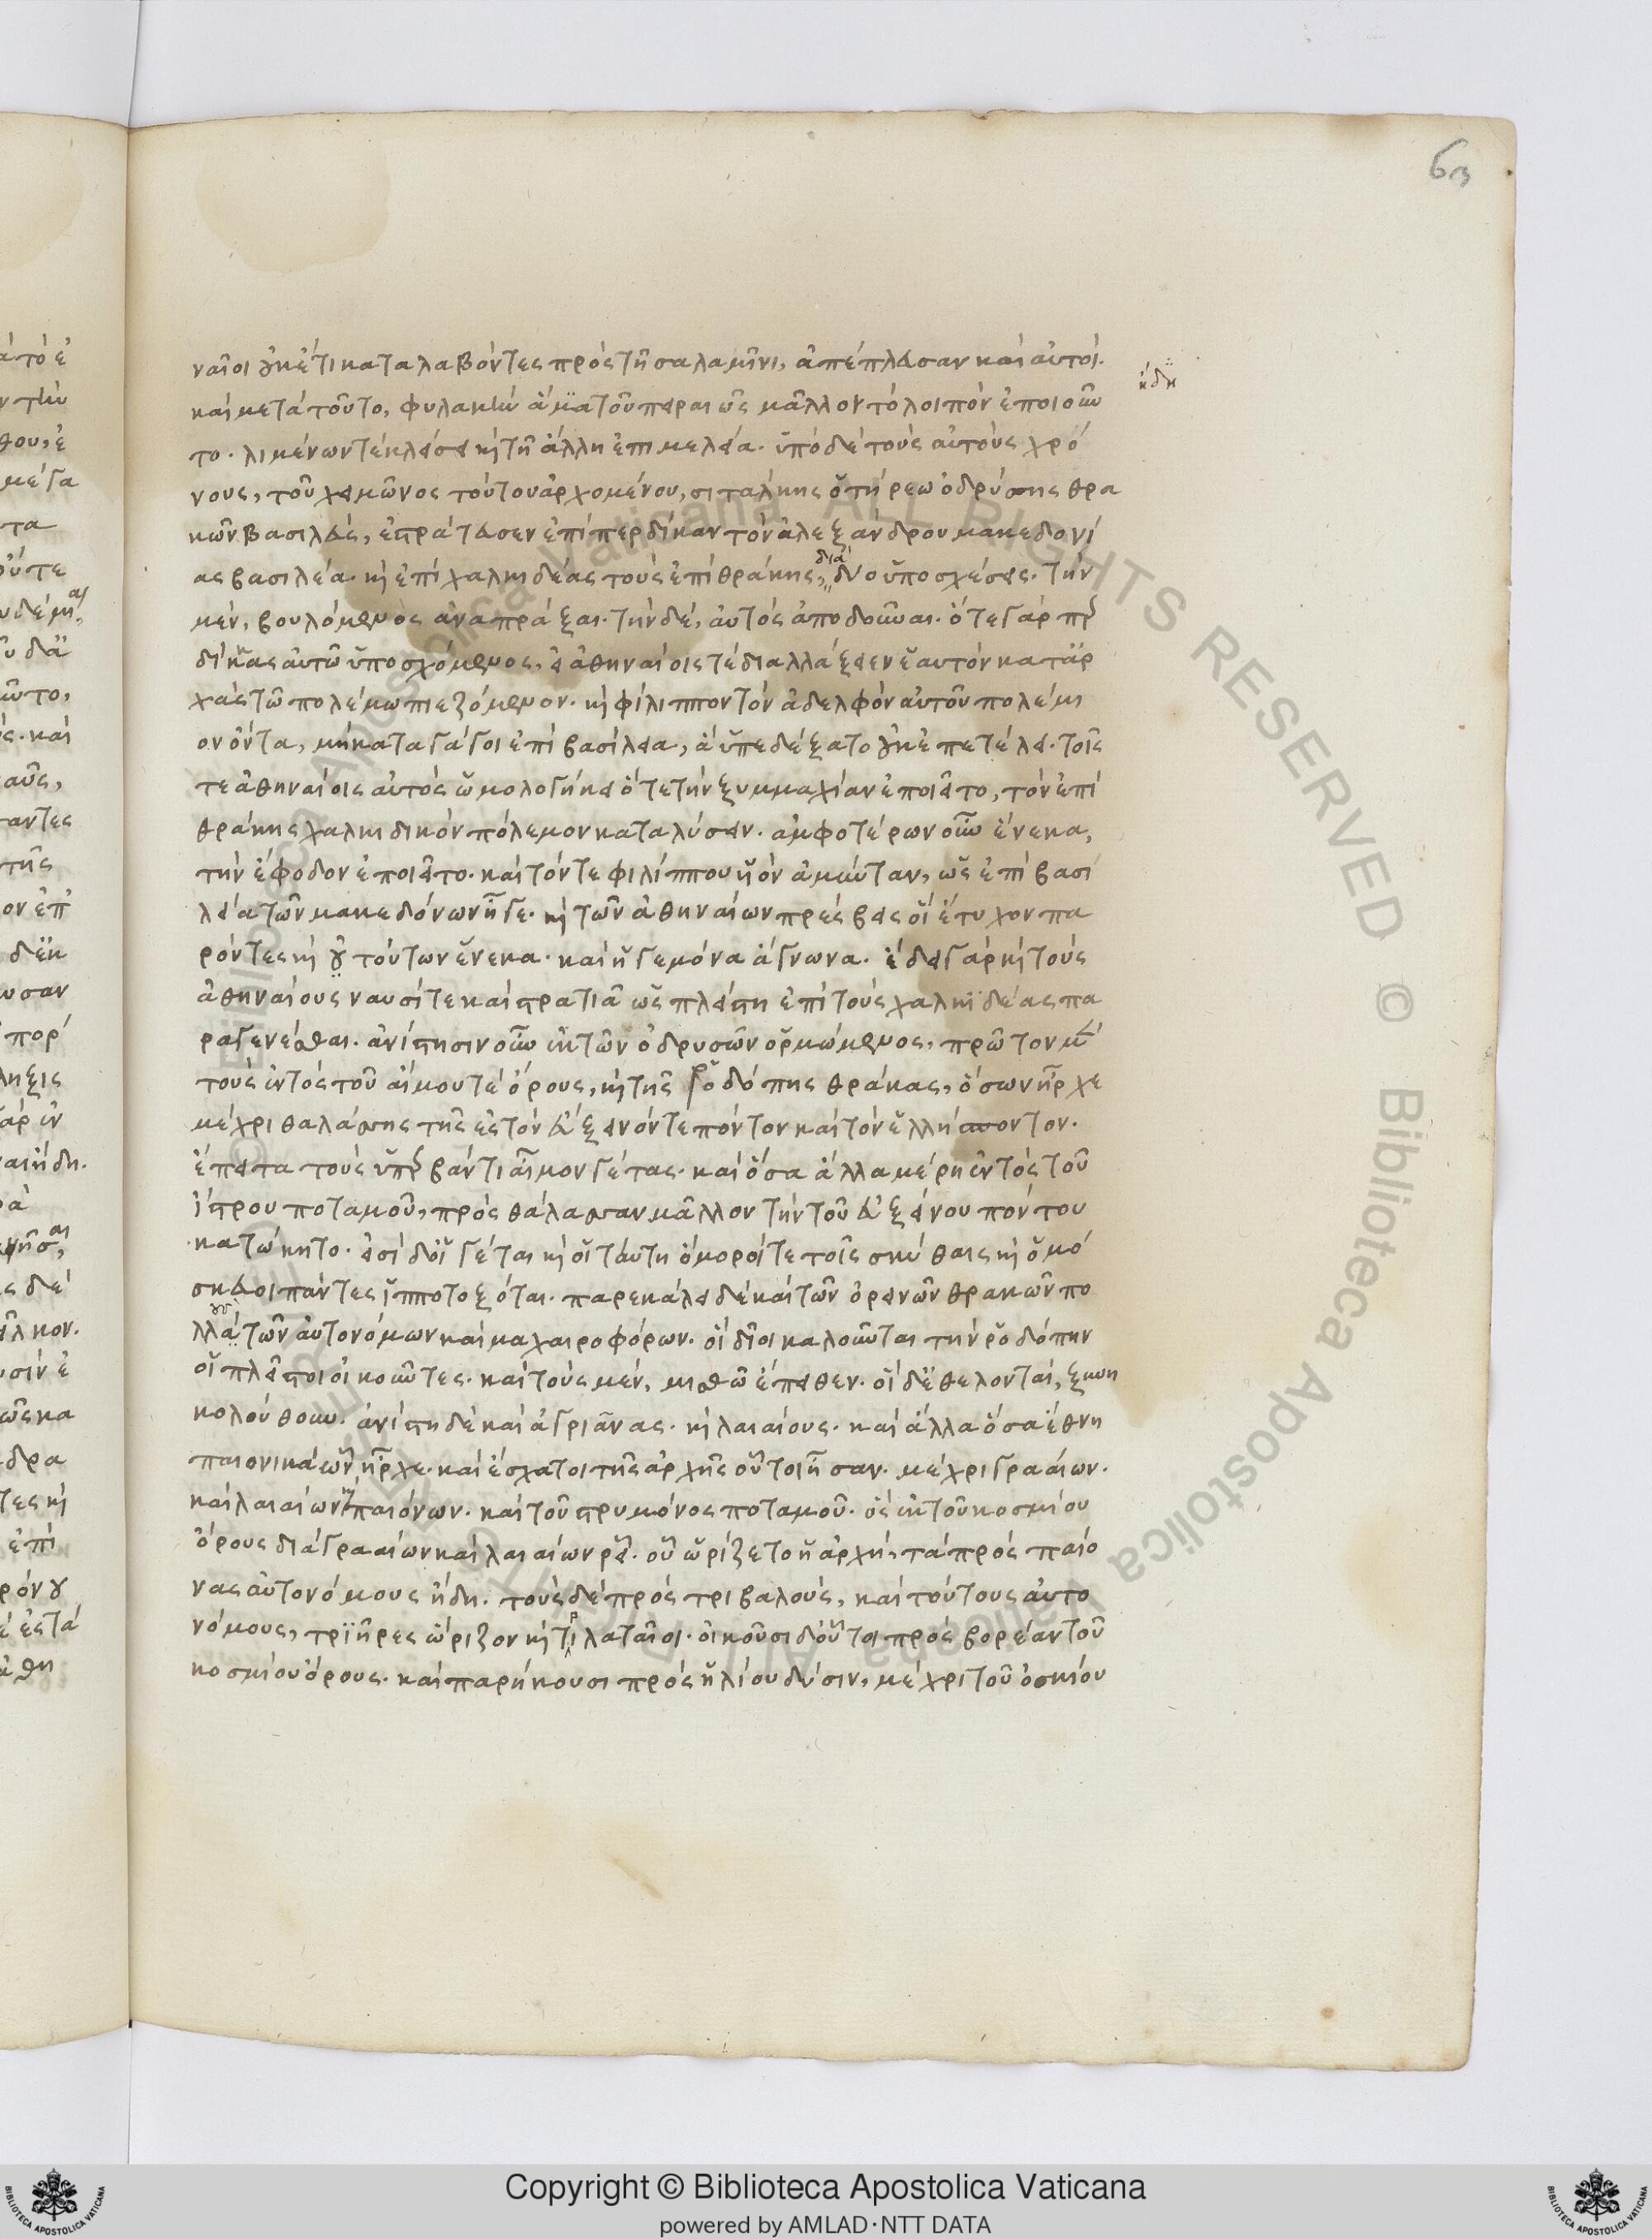 63
ναῖοι οὐκέτι καταλαβόντες πρὸς τῆ σαλαμῖνι, ἀπέπλευσαν καὶ αὐτοί.
ἤδη
καὶ μετὰ τοῦτο, φυλακὴν ἅμα τοῦ πειραιῶς μᾶλλον τὸ λοιπὸν ἐποιοῦν
το. λιμένων τὲ κλείσει κ̀ τῆ ἄλλη ἐπιμελεία. ὑπὸ δὲ τοὺς αὐτοὺς χρό
νους, τοῦ χειμῶνος τούτου ἀρχομένου, σιτάλκης ὁ τήρεω ὀδρύσης θρα
κῶν βασιλεὺς, ἐστράτευσεν ἐπὶ περδίκαν τὸν ἀλεξάνδρου μακεδονί
ας βασιλέα. κ̀ ἐπὶ χαλκιδέας τοὺς ἐπὶ θράκης, διὰ δύο ὑποσχέσεις. τὴν
μὲν, βουλόμενος ἀναπράξαι. τὴν δὲ, αὐτὸς ἀποδοῦναι. ὅ τε γὰρ περ
δίκκας αὐτῶ ὑποσχόμενος, εἰ ἀθηναίοις τὲ διαλλάξειεν ἑαυτὸν κατ' ἀρ
χὰς τῶ πολέμω πιεζόμενον. κ̀ φίλιππον τὸν ἀδελφὸν αὐτοῦ πολέμι
ον ὄντα, μὴ καταγάγοι ἐπὶ βασίλεια, ἃ ὑπεδέξατο οὐκ ἐπετέλει. τοῖς
τε ἀθηναίοις αὐτὸς ὡμολογήκει ὅτε τὴν ξυμμαχίαν ἐποιεῖτο, τὸν ἐπὶ
θράκης χαλκιδικὸν πόλεμον καταλύσειν. ἀμφοτέρων οὖν ἕνεκα,
τὴν ἔφοδον ἐποιεῖτο. καὶ τόν τε φιλίππου ὑὸν ἀμύνταν, ὡς ἐπὶ βασι
λεία τῶν μακεδόνων ἦγε. κ̀ τῶν ἀθηναίων πρέσβεις οἳ ἔτυχον πα
ρόντες κ̀ τούτων ἕνεκα. καὶ ἡγεμόνα ἅγνωνα. ἔδει γὰρ κ̀ τοὺς
ἀθηναίους ναυσί τε καὶ στρατιᾶ ὡς πλείστη ἐπὶ τοὺς χαλκιδέας πα
ραγενέσθαι. ἀνίστησιν οὖν ἐκ τῶν ὀδρυσῶν ὁρμώμενος, πρῶτον μὲν
τοὺς ἐντὸς τοῦ αἵμου τὲ ὄρους, κ̀ τῆς ῥοδόπης θράκας, ὅσων ἦρχε
μέχρι θαλάσσης τῆς ἐς τὸν εὔξεινόν τε πόντον καὶ τὸν ἑλλήσποντον.
ἔπειτα τοὺς ὑπερβάντι αἷμον γέτας. καὶ ὅσα ἄλλα μέρη ἐντὸς τοῦ
ἴστρου ποταμοῦ, πρὸς θάλασσαν μᾶλλον τὴν τοῦ εὐξείνου πόντου
κατώκητο. εἰσὶ δ' οἱ γέται κ̀ οἱ ταύτη ὅμοροί τε τοῖς σκύθαις κ̀ ὁμό
σκευοι πάντες ἱπποτοξόται. παρεκάλει δὲ καὶ τῶν ὀρεινῶν θρακῶν πο
λλοὺς τῶν αὐτονόμων καὶ μαχαιροφόρων. οἳ δῖοι καλοῦνται τὴν ῥοδόπην
οἱ πλεῖστοι οἰκοῦντες. καὶ τοὺς μὲν, μισθῶ ἔπειθεν. οἱ δ' ἐθελονταὶ, ξυνη
κολούθουν. ἀνίστη δὲ καὶ ἀγριᾶνας. κ̀ λαιαίους. καὶ ἄλλα ὅσα ἔθνη
παιονικὰ ὧν ἦρχε. καὶ ἔσχατοι τῆς ἀρχῆς οὗτοι ἦσαν. μέχρι γρααίων.
καὶ λαιαίων παιόνων. καὶ τοῦ στρυμόνος ποταμοῦ. ὃς ἐκ τοῦ κοσμίου
ὄρους διὰ γρααίων καὶ λαιαίων ῥεῖ. οὗ ὡρίζετο ἡ ἀρχὴ, τὰ πρὸς παίο
νας αὐτονόμους ἤδη. τοὺς δὲ πρὸς τριβαλοὺς, καὶ τούτους αὐτο
νόμους, τρῖηρες ὥριζον κ̀ τιλαταῖοι. οἰκοῦσι δ' οὗτοι πρὸς βορέαν τοῦ
κοσμίου ὄρους. καὶ παρήκουσι πρὸς ἡλίου δύσιν, μέχρι τοῦ ὀσκίου
© Biblioteca Apostolica Vaticana ALL RIGHTS RESERVED
Copyright © Biblioteca Apostolica Vaticana
powered by AMLAD·NTT DATA